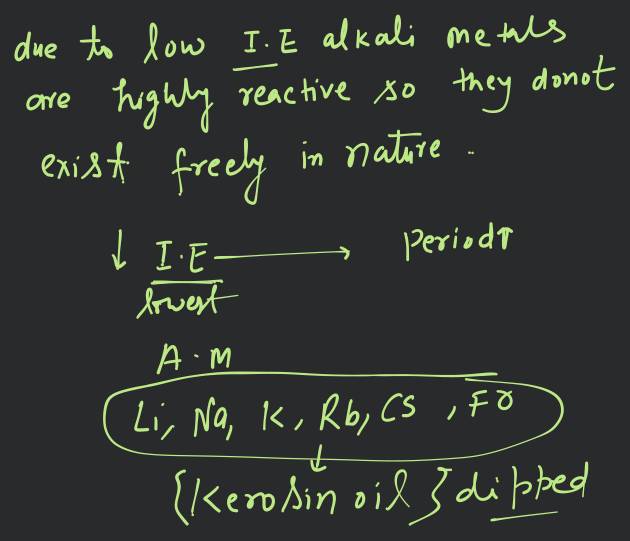 due to low I.E alkali metals
are highly reactive so they donot
exist freely in nature.
↓ I.E ⟶ period↑
lowest
A.M
Li, Na, K, Rb, Cs, Fr
↓
{Kerosin oil} dipped